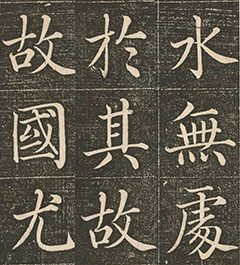 水無處
於其故
故國尤